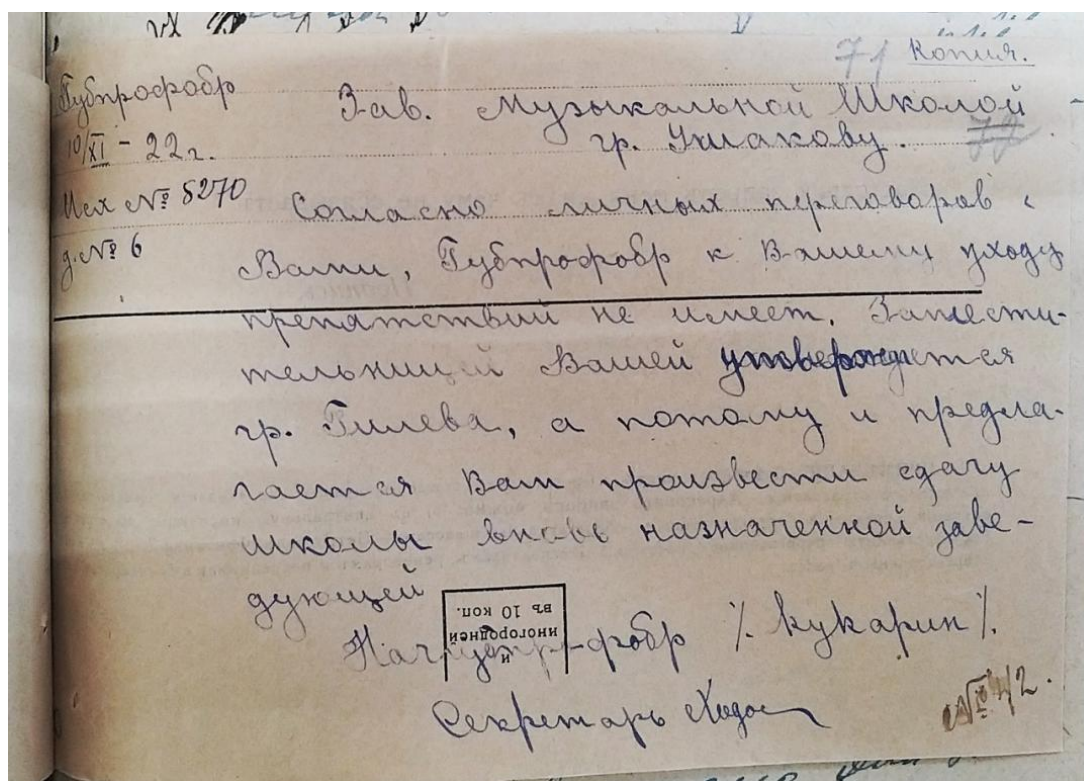 71 Копия.
Губпрофобр
10/XI - 22 г.
Исх № 5270
д. № 6
Зав. Музыкальной Школой
гр. Ушакову.
77
Согласно личных переговаров с
Вами, Губпрофобр к Вашему уходу
препатствий не имеет. Замести-
тельницей Вашей утверждается
гр. Гилева, а потому и предла-
гается Вам произвести сдачу
школы вновь назначенной заве-
дующей
иногородней
въ 10 коп.
Начгубпрофобр /. Кукарин /.
Секретарь